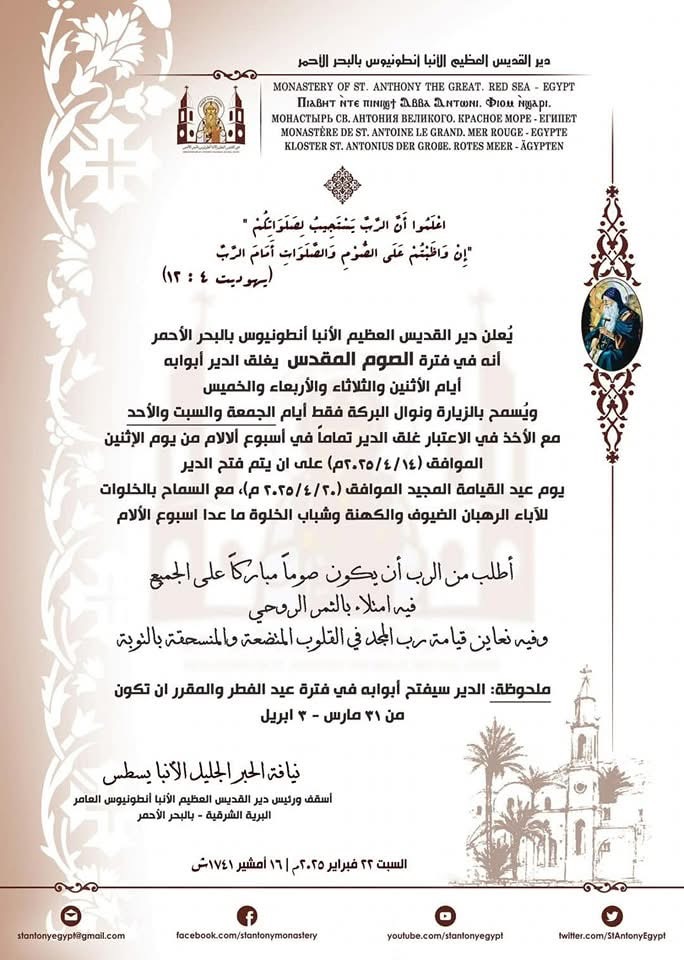 دير القديس العظيم الأنبا أنطونيوس بالبحر الأحمر
MONASTERY OF ST. ANTHONY THE GREAT. RED SEA - EGYPT
Ⲡⲓⲁⲃⲏⲧ ⲛ̀ⲧⲉ ⲡⲓⲛⲓϣϯ Ⲁⲃⲃⲁ Ⲁⲛⲧⲱⲛⲓ. Ⲫⲓⲟⲙ ⲛ̀ϣⲁⲣⲓ.
МОНАСТЫРЬ СВ. АНТОНИЯ ВЕЛИКОГО. КРАСНОЕ МОРЕ - ЕГИПЕТ
MONASTÈRE DE ST. ANTOINE LE GRAND. MER ROUGE - EGYPTE
KLOSTER ST. ANTONIUS DER GROßE. ROTES MEER - ÄGYPTEN
اعْلَمُوا أَنَّ الرَّبَّ يَسْتَجِيبُ لِصَلَوَاتِكُمْ "
"إِنْ وَاظَبْتُمْ عَلَى الصَّوْمِ وَالصَّلَوَاتِ أَمَامَ الرَّبِّ
(يهوديت ٤ : ١٢)
يُعلن دير القديس العظيم الأنبا أنطونيوس بالبحر الأحمر
أنه في فترة الصوم المقدس يغلق الدير أبوابه
أيام الأثنين والثلاثاء والأربعاء والخميس
ويُسمح بالزيارة ونوال البركة فقط أيام الجمعة والسبت والأحد
مع الأخذ في الاعتبار غلق الدير تماماً في أسبوع ألالام من يوم الإثنين
الموافق (٢٠٢٥/٤/١٤م) على ان يتم فتح الدير
يوم عيد القيامة المجيد الموافق (٢٠٢٥/٤/٢٠ م)، مع السماح بالخلوات
للآباء الرهبان الضيوف والكهنة وشباب الخلوة ما عدا اسبوع الألام
أطلب من الرب أن يكون صوماً مباركاً على الجميع
فيه امتلاء بالثمر الروحي
وفيه نعاين قيامة رب المجد في القلوب المتضعة والمنسحقة بالتوبة
ملحوظة: الدير سيفتح أبوابه في فترة عيد الفطر والمقرر ان تكون
من ٣١ مارس - ٣ ابريل
نيافة الحبر الجليل الأنبا يسطس
أسقف ورئيس دير القديس العظيم الأنبا أنطونيوس العامر
البرية الشرقية - بالبحر الأحمر
السبت ٢٢ فبراير ٢٠٢٥م | ١٦ أمشير ١٧٤١ش
stantonyegypt@gmail.com
facebook.com/stantonymonastery
youtube.com/stantonyegypt
twitter.com/StAntonyEgypt